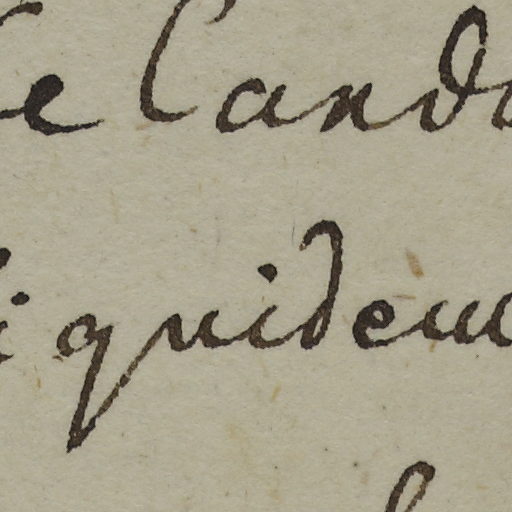 e Cando
i quidem